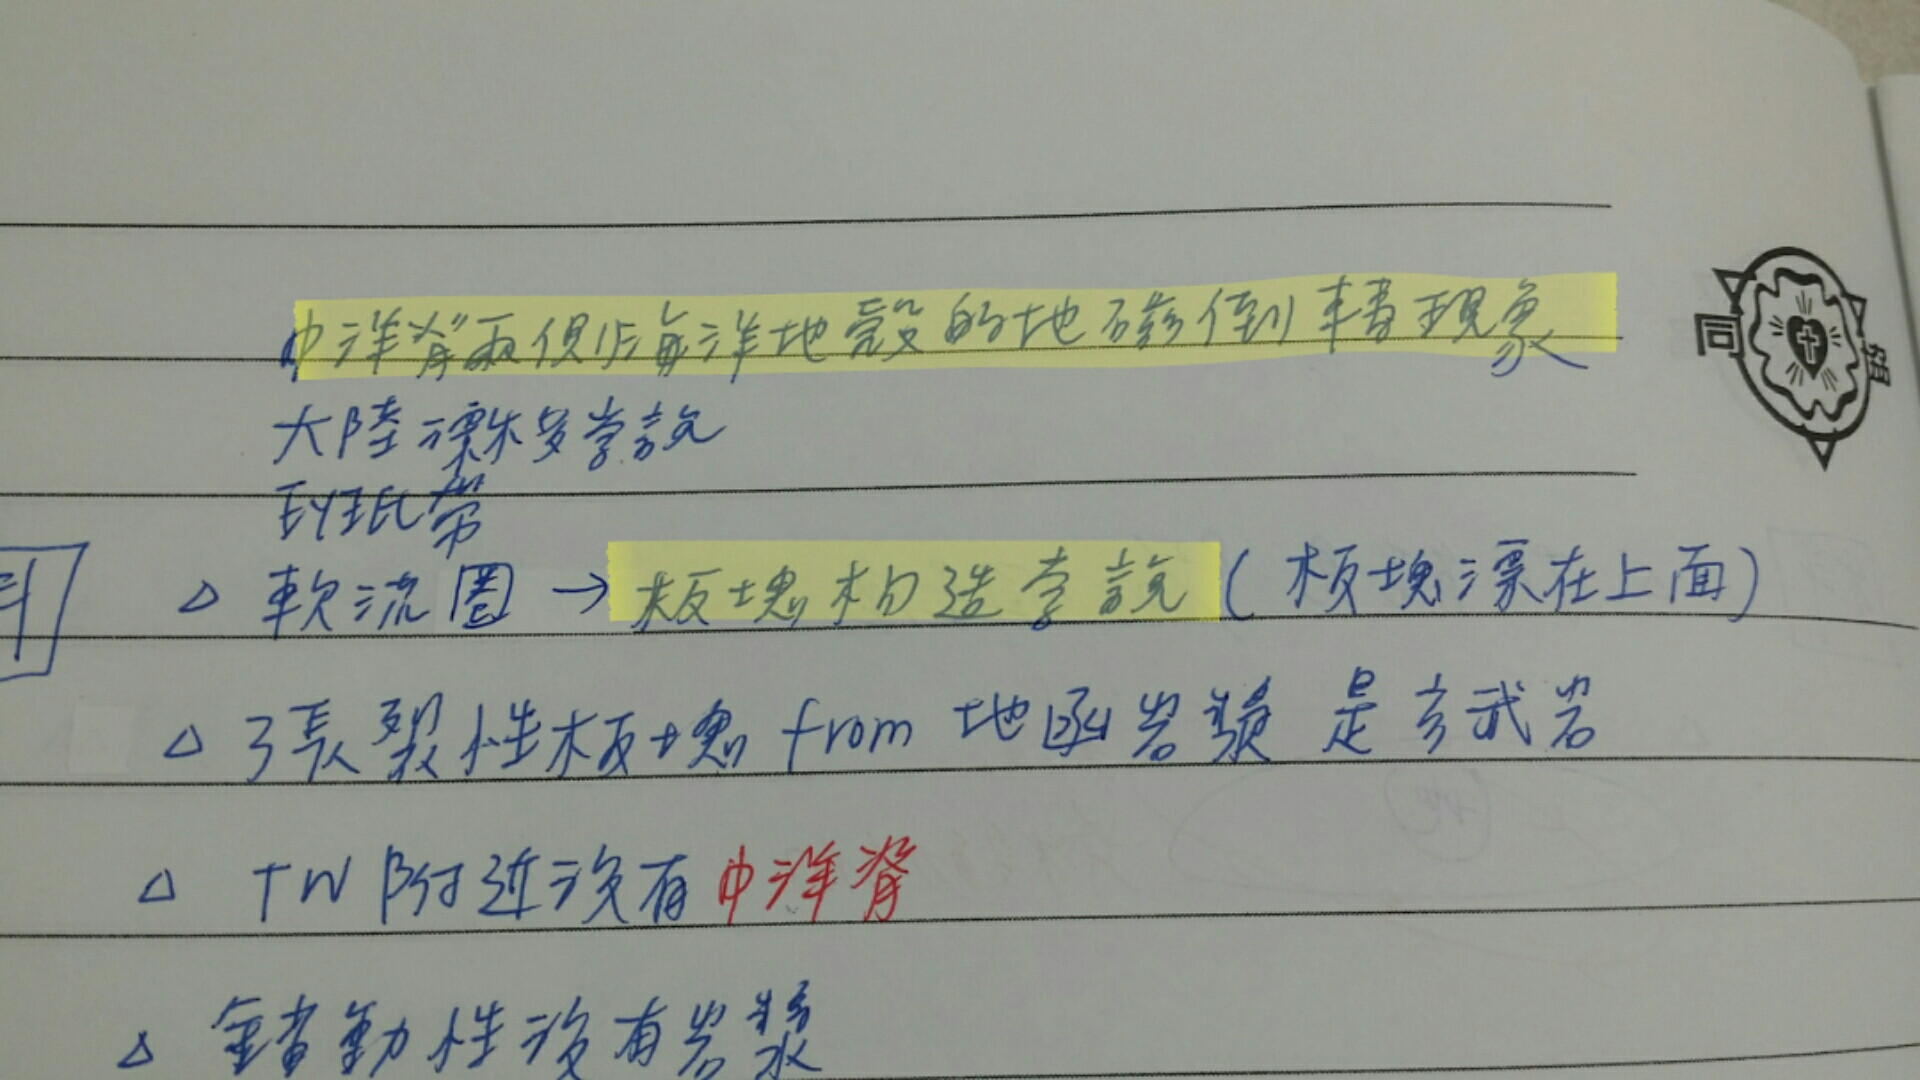 中洋脊兩側海洋地殼的地磁倒轉現象
同
大陸漂移學說
班氏帶
△ 軟流圈 → 板塊構造學說 (板塊漂在上面)
△ 張裂性板塊 from 地函岩漿 是玄武岩
△ TW 附近沒有中洋脊
△ 錯動性沒有岩漿